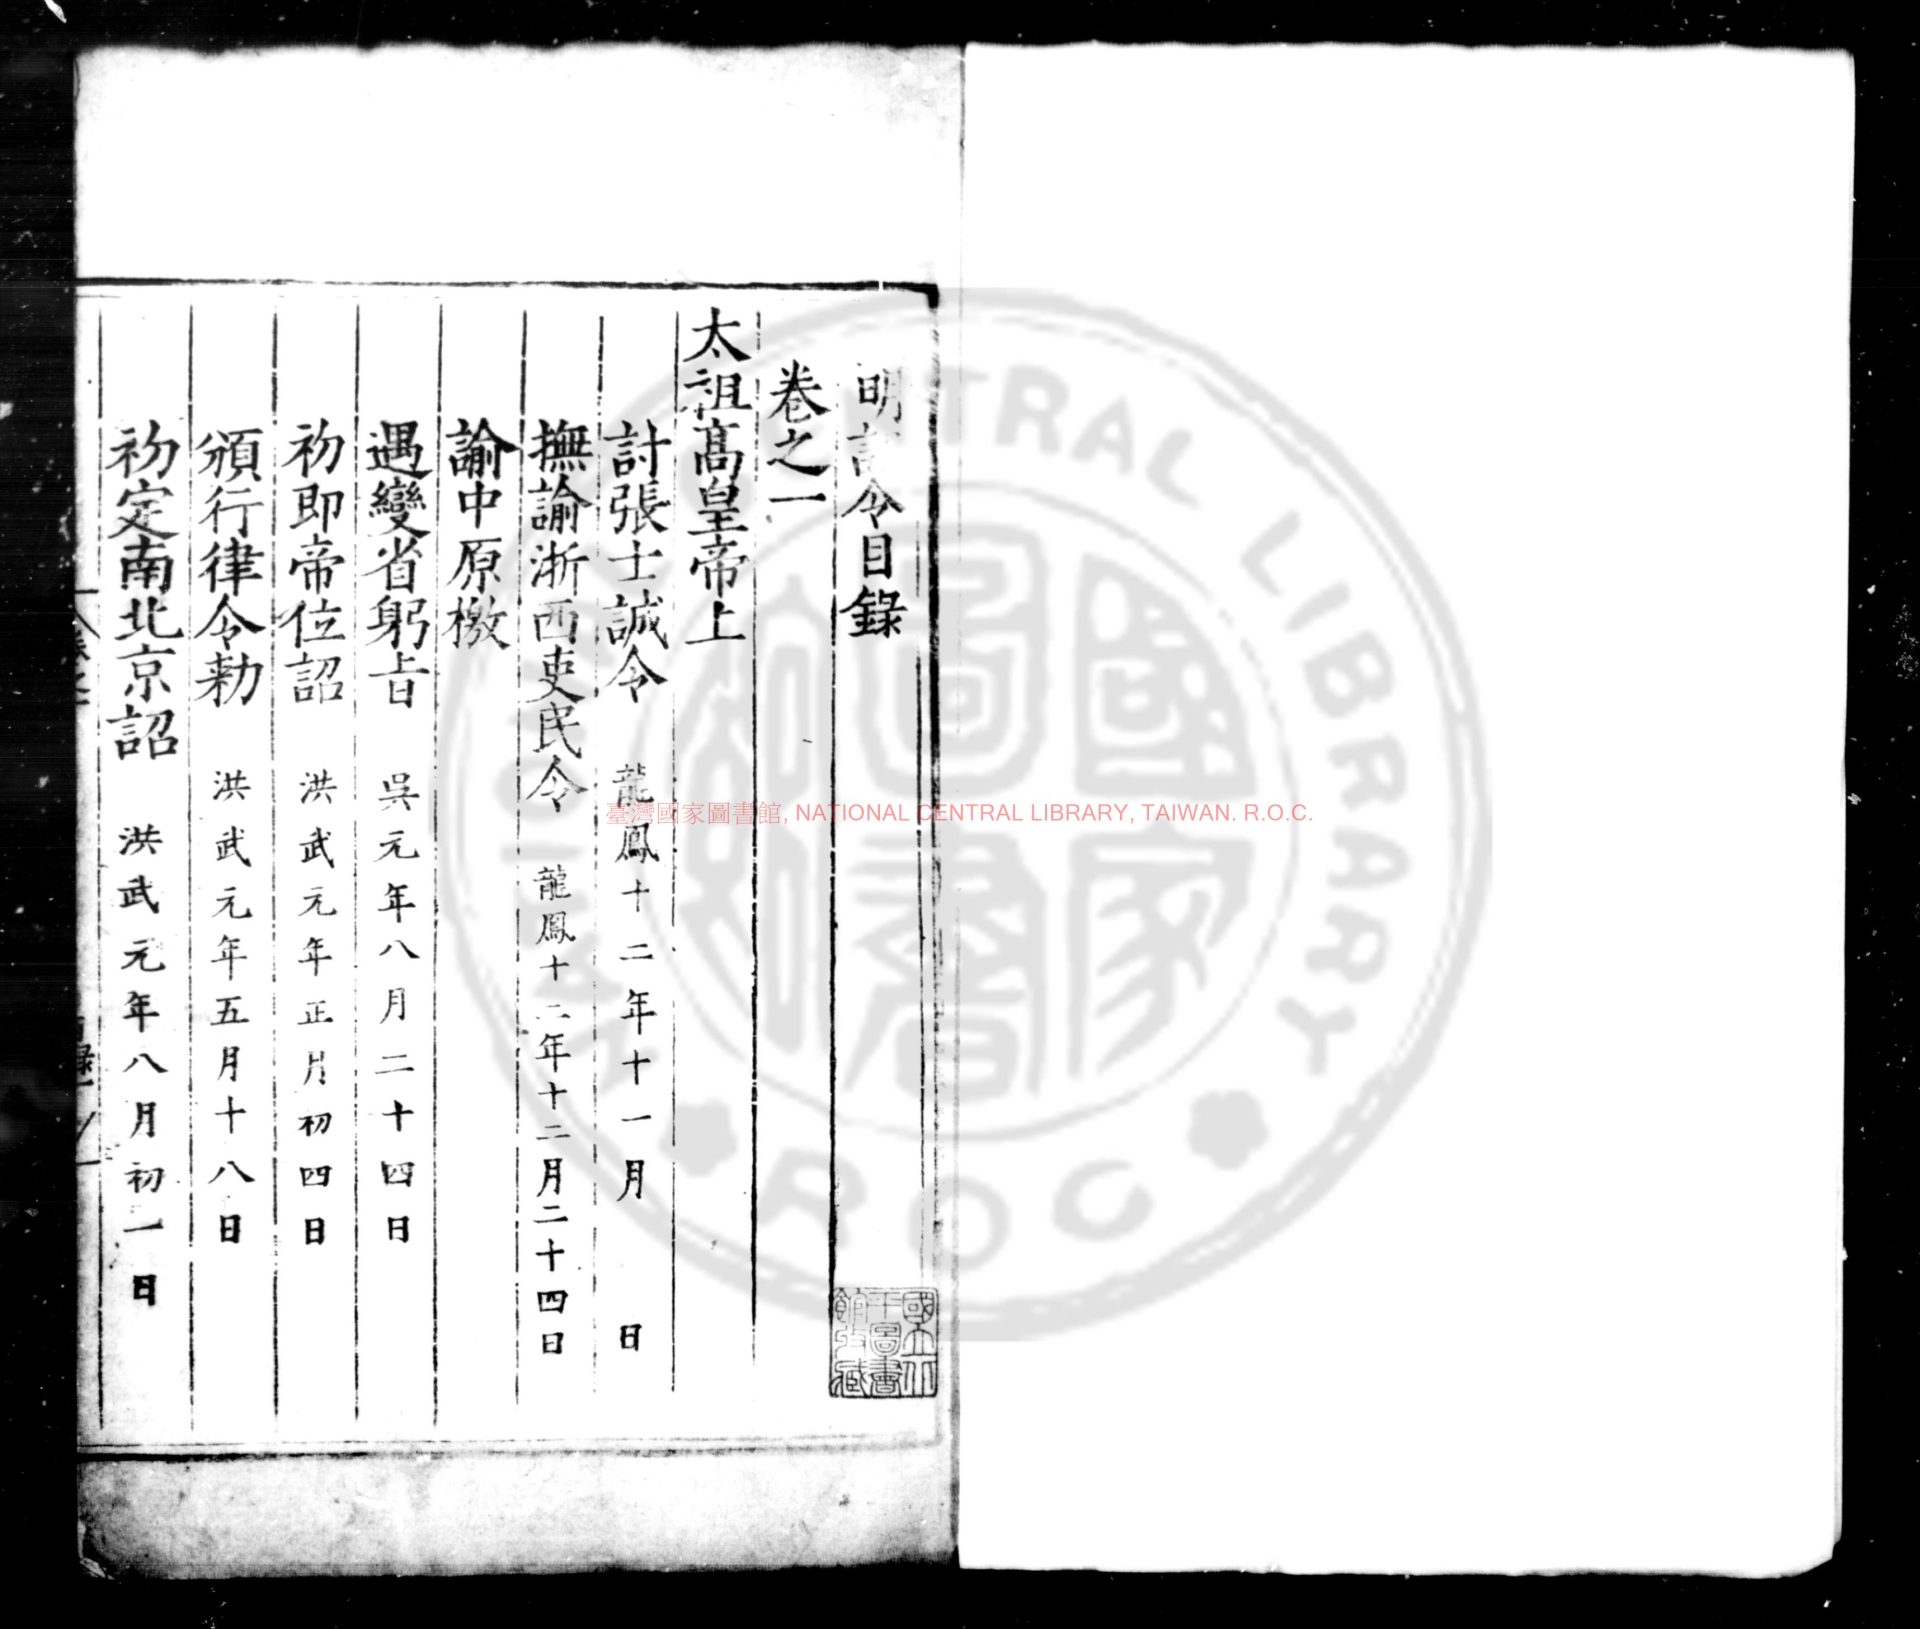 明詔令目錄
卷之一
太祖髙皇帝上
討張士誠令 龍鳳十二年十一月 日
撫諭浙西吏民令 龍鳳十二年十二月二十四日
諭中原檄
遇變省躬旨 吳元年八月二十四日
初即帝位詔 洪武元年正月初四日
頒行律令勑 洪武元年五月十八日
初定南北京詔 洪武元年八月初一日
國立北
平圖書
館收藏
國家
圖書
NATIONAL CENTRAL LIBRARY
ROC
臺灣國家圖書館, NATIONAL CENTRAL LIBRARY, TAIWAN. R.O.C.